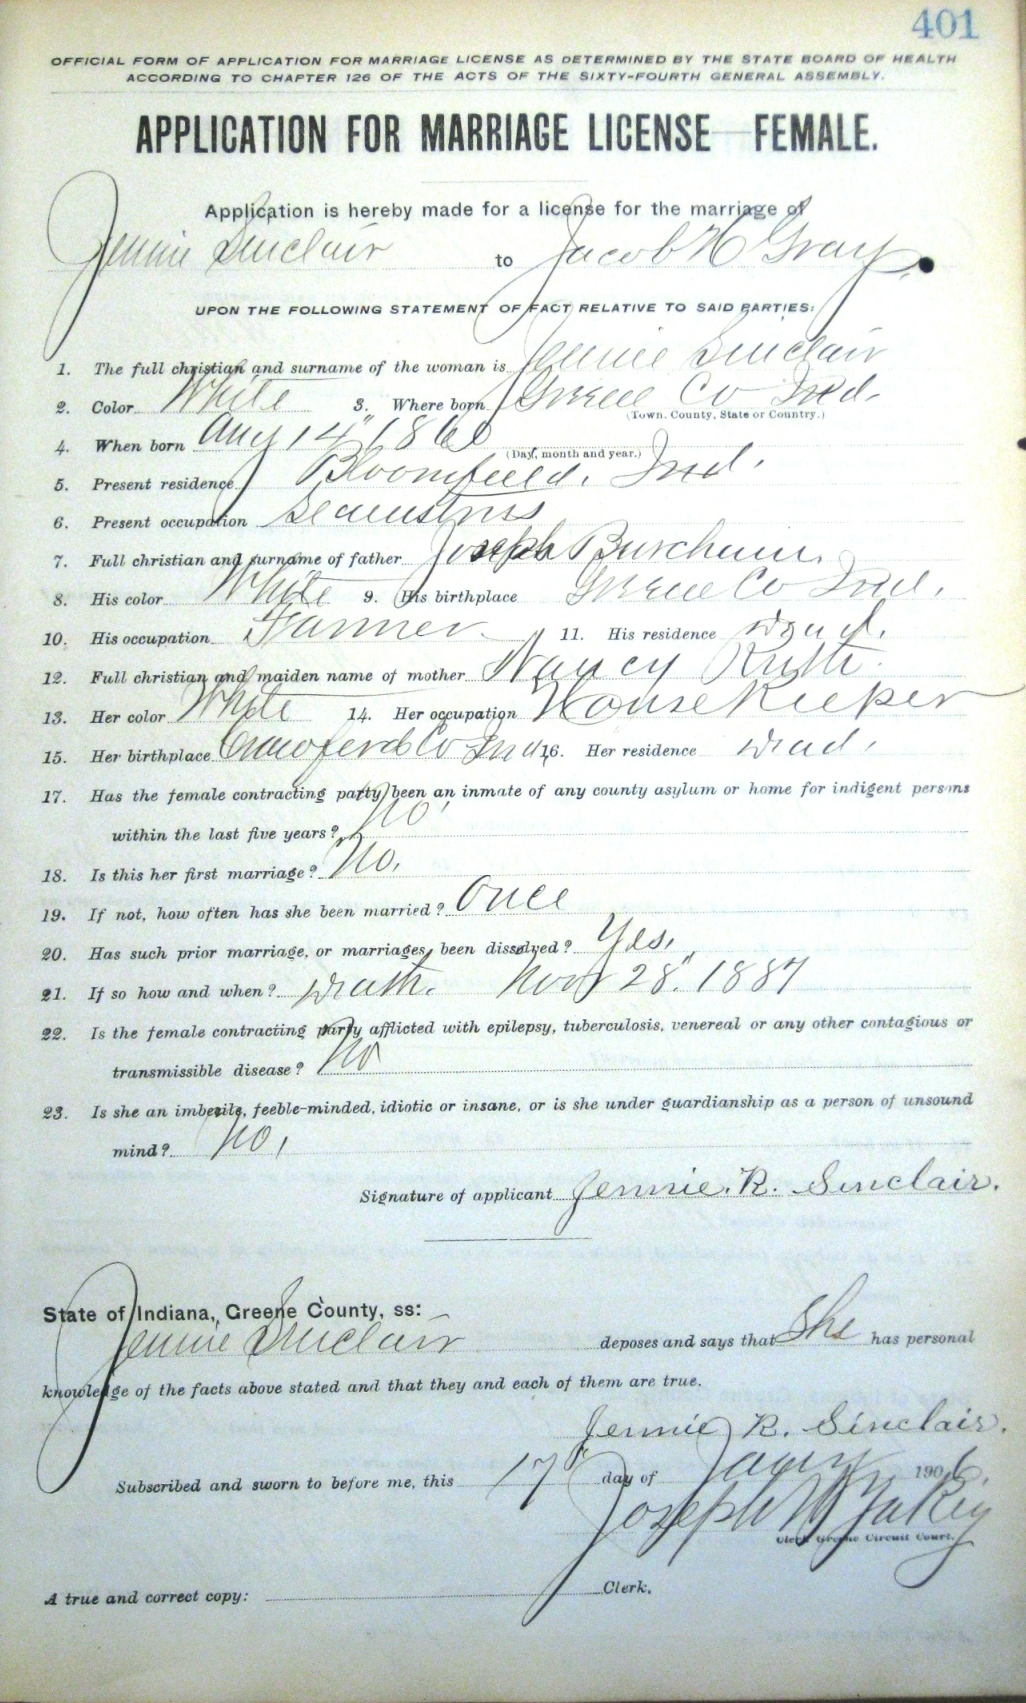 401
OFFICIAL FORM OF APPLICATION FOR MARRIAGE LICENSE AS DETERMINED BY THE STATE BOARD OF HEALTH
ACCORDING TO CHAPTER 126 OF THE ACTS OF THE SIXTY-FOURTH GENERAL ASSEMBLY.
APPLICATION FOR MARRIAGE LICENSE—FEMALE.
Application is hereby made for a license for the marriage of
Jennie Sinclair to Jacob H Gray.
UPON THE FOLLOWING STATEMENT OF FACT RELATIVE TO SAID PARTIES:
1. The full christian and surname of the woman is Jennie Sinclair
2. Color White 3. Where born Greene Co Ind.
(Town, County, State or Country.)
4. When born Aug 14" 1860
(Day, month and year.)
5. Present residence Bloomfield, Ind.
6. Present occupation Seamstress
7. Full christian and surname of father Joseph Burcham.
8. His color White 9. His birthplace Greene Co Ind.
10. His occupation Farmer 11. His residence Dead.
12. Full christian and maiden name of mother Nancy
13. Her color White 14. Her occupation House Keeper
15. Her birthplace Crawford Co Ind 16. Her residence Dead.
17. Has the female contracting party been an inmate of any county asylum or home for indigent persons
within the last five years? No
18. Is this her first marriage? No.
19. If not, how often has she been married? Once
20. Has such prior marriage, or marriages, been dissolved? Yes.
21. If so how and when? Death. Nov 28" 1887
22. Is the female contracting party afflicted with epilepsy, tuberculosis, venereal or any other contagious or
transmissible disease? No
23. Is she an imbecile, feeble-minded, idiotic or insane, or is she under guardianship as a person of unsound
mind? No,
Signature of applicant Jennie. R. Sinclair.
State of Indiana, Greene County, ss:
Jennie Sinclair deposes and says that She has personal
knowledge of the facts above stated and that they and each of them are true.
Jennie R. Sinclair.
Subscribed and sworn to before me, this 17" day of Jany 1906.
Joseph W Yakey
Clerk Greene Circuit Court.
A true and correct copy: Clerk.